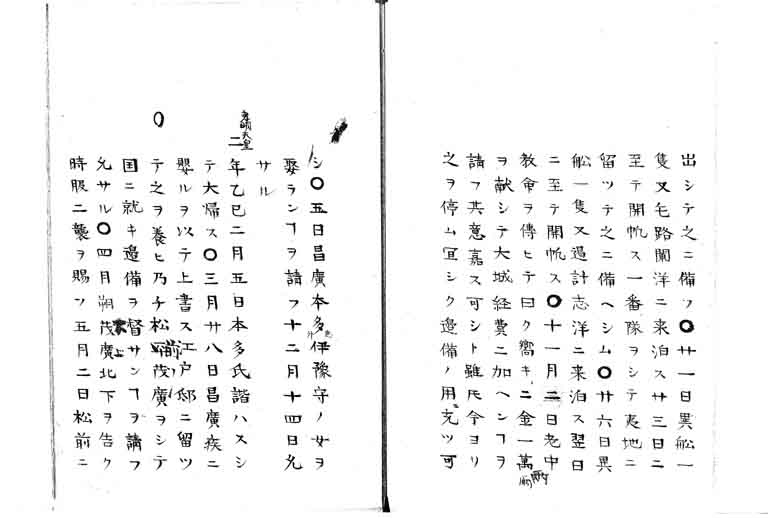 出シテ之ニ備フ〇廿一日異船一
隻又乇路闌洋ニ来泊ス廿三日ニ
至テ開帆ス一番隊ヲシテ夷地ニ
留ツテ之ニ備ヘシム〇廿六日異
船一隻又過計志洋ニ来泊ス翌日
ニ至テ開帆ス〇十一月二日老中
教命ヲ傳ヒテ曰ク嚮キニ金一萬両
ヲ献シテ大城経費ニ加ヘンヿヲ
請フ其意嘉ス可シト雖𪜈今ヨリ
之ヲ停ム冝シク邉備ノ用ニ充ツ可
シ〇五日昌廣本多伊豫守ノ女ヲ
娶ランヿヲ請フ十二月十四日允
サル
孝明天皇
二年乙巳二月五日本多氏諧ハスシ
テ大帰ス〇三月廿八日昌廣疾ニ
嬰ルヲ以テ上書ス江戸邸ニ留ツ
テ之ヲ養ヒ乃チ松前茂廣ヲシテ
国ニ就キ邉備ヲ督サンヿヲ請フ
允サル〇四月朔茂廣北下ヲ告ク
時服二襲ヲ賜フ五月二日松前ニ